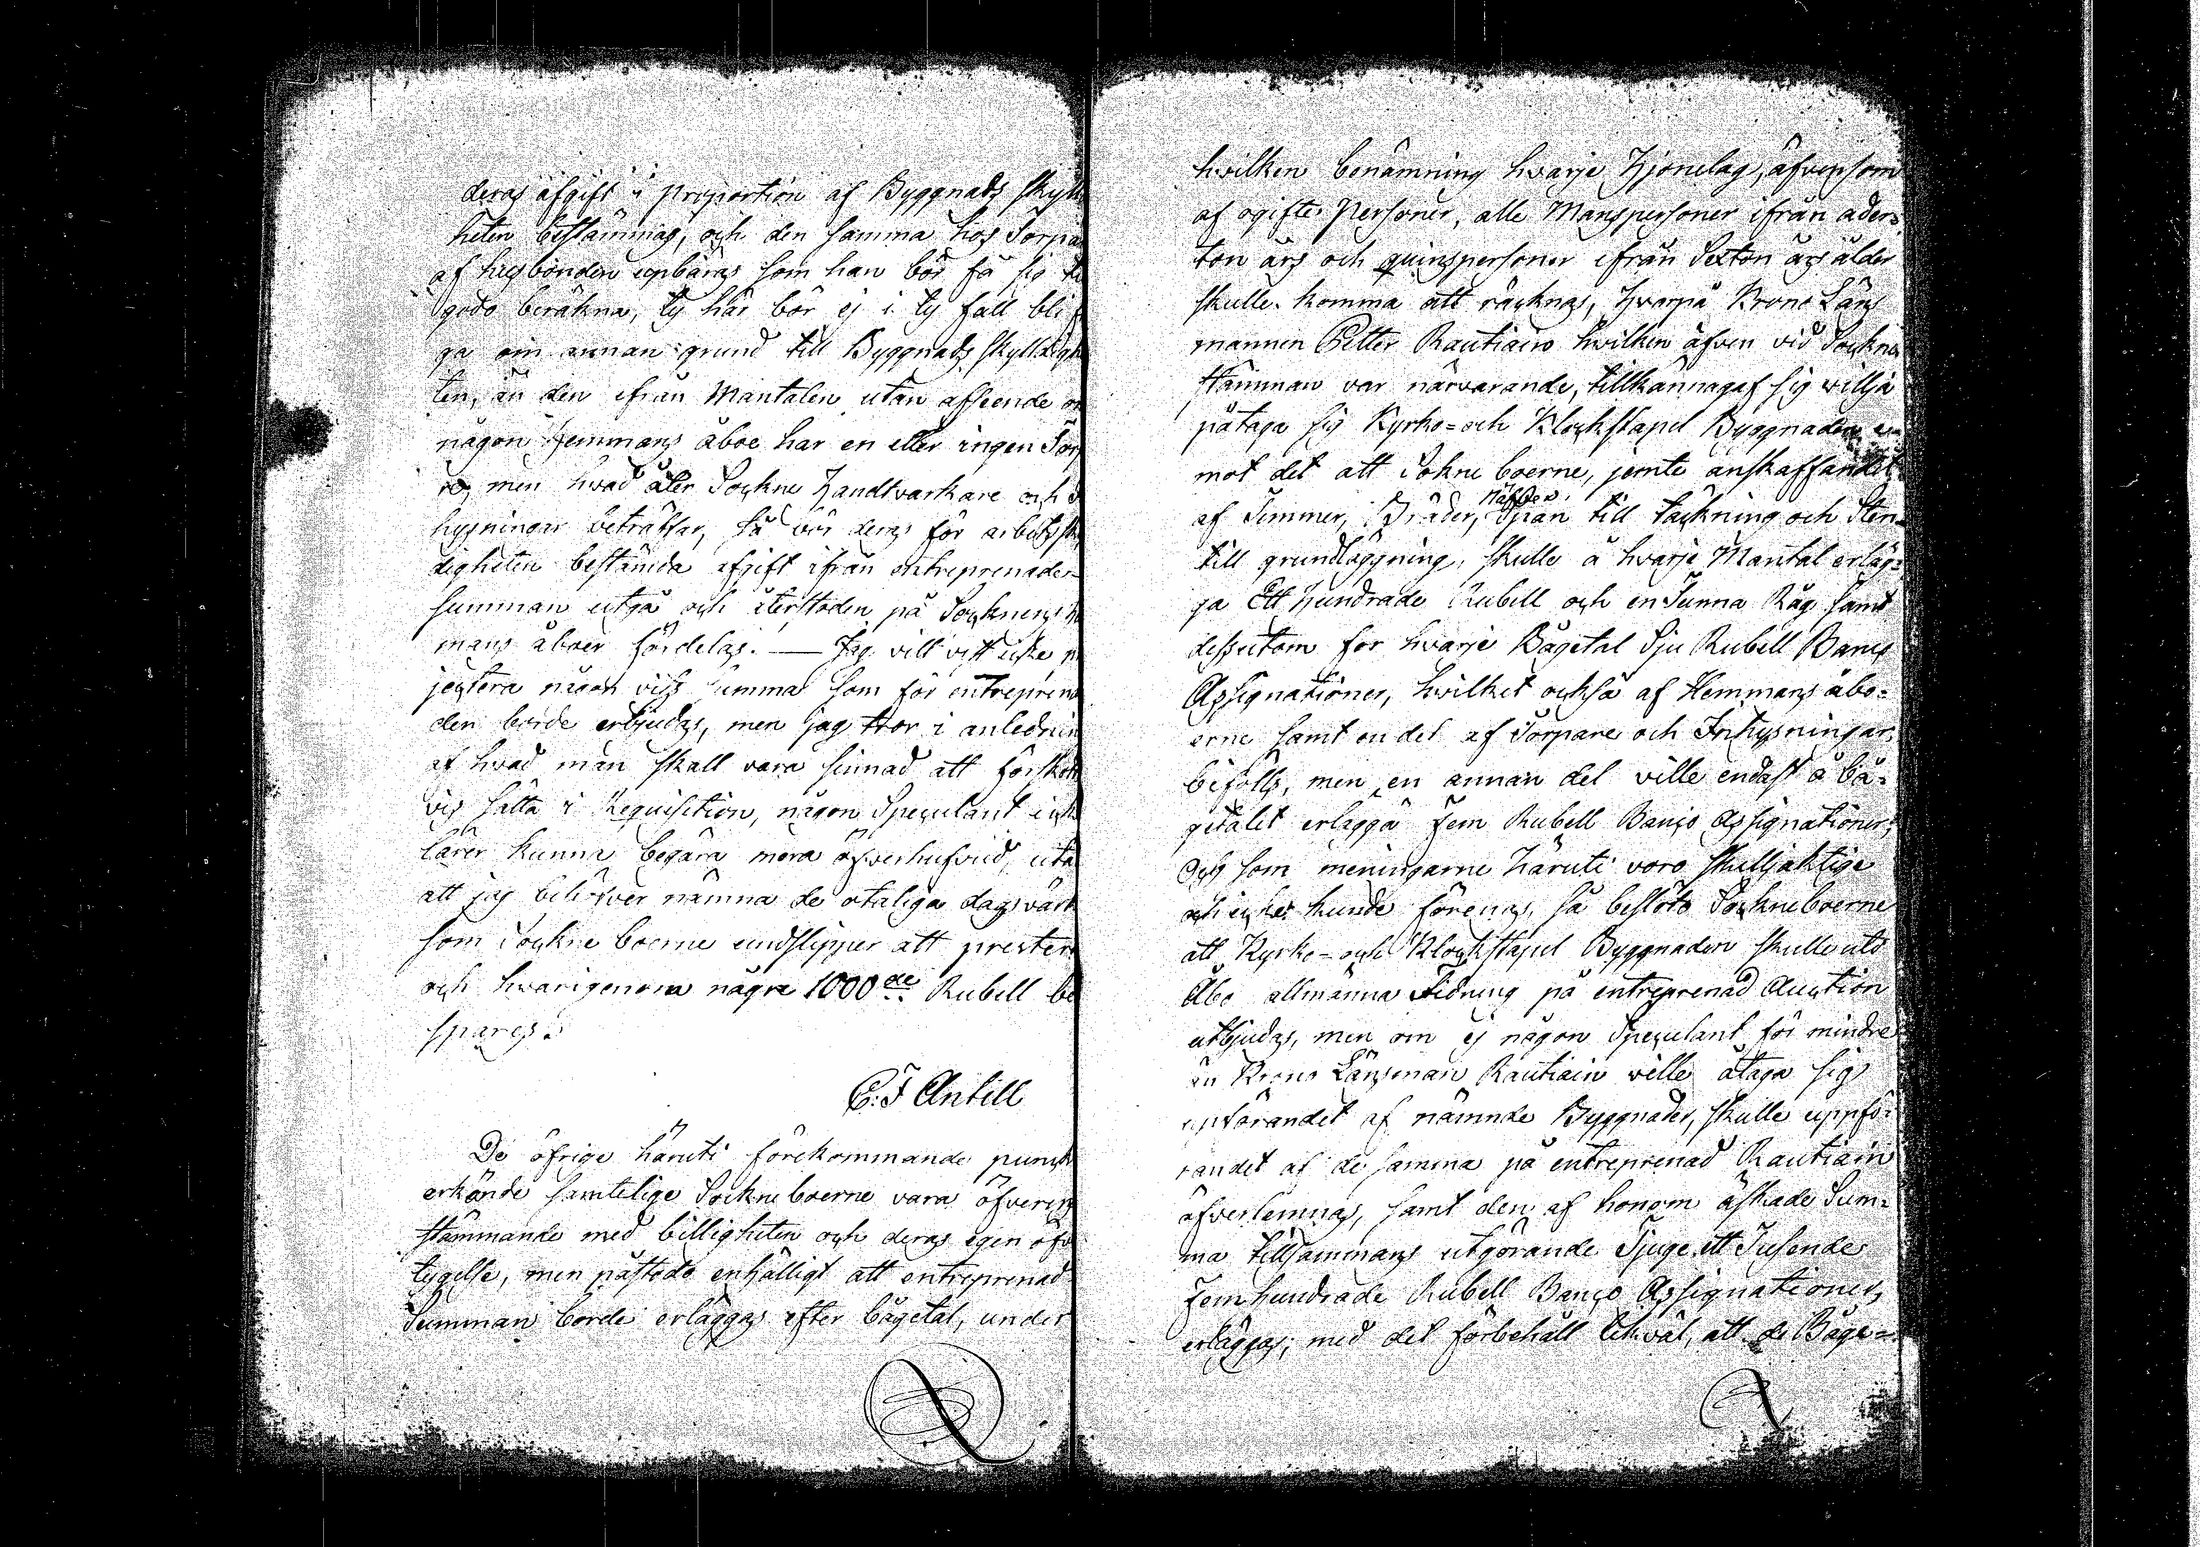 deras afgift i proportion af Byggnads skyl
heten bestämmas, och den samma hos Torpa
af husbonden upbäras som han bör få sig ti
godo beräkna, ty här bör ej i ty fall bli f
ga om annan grund till Byggnads skyldigh
ten, än den ifrån Mantalen utan afseende o
någon Hemmans åboe har en eller ingen Torp
re, men hvad åter Sockne Handtvärkare och I
hysningar beträffar, så bör deras för arbets sky
digheten bestämda afgift ifrån entreprenade-
summan utgå och återstoden på Socknens He
mans åboer fördelas. — Jag vill visst icke p
jectera någon viss summa som för entreprena
den borde erbjudas, men jag tror i anlednin
af hvad man skall vara sinnad att förskott
vis sätta i Requisition, någon Speculant ick
lärer kunna begära mera öfverhufvud, uta
att jag behöfver nämna de otaliga dagsvärk
som Sockne boerne undslipper att prester
och hvarigenom någre 1000de Rubell be
sparas.
C: F Antell
De öfrige häruti förekommande punct
erkände samtelige Sockneboerne vara öfverens
stämmande med billigheten och deras egen öfv
tygelse, men påstodo enhälligt att entreprenad
Summan borde erläggas efter bågetal, under
hvilken benämning hvarje Hjonelag, äfvensom
af ogifte Personer, alle Manspersoner ifrån ader-
ton års och quinspersoner ifrån Sexton års ålder
skulle komma att räcknas, hvarpå Krono Läns
mannen Petter Rautiain hvilken äfven vid Sockne
stämman var närvarande, tillkännagaf sig villja
påtaga sig Kyrko- och Klockstapel Byggnaden e-
mot det att Sokne boerne, jemte anskaffandet
af Timmer, Bräder, Näfver Spån till täckning och Sten
till grundläggning, skulle å hvarje Mantal erläg-
ga Ett hundrade Rubell och en Tunna Råg samt
dessutom för hvarje Bågetal Sju Rubell Banco
Assignationer, hvilket också af Hemmans åbo-
erne samt en del af Torpare och Inhysningar
bifölls, men en annan del ville endast å bå-
getalet erlägga Fem Rubell Banco Assignationer;
Och som meningarne häruti voro skilljaktige
och icke kunde förenas, så beslöto Sockneboerne
att Kyrko- och Klockstapel Byggnaden skulle uti
Åbo allmänna Tidning på entreprenad Auction
utbjudas, men om ej någon Speculant för mindre
än Krono Länsman Rautiain ville åtaga sig
upförandet af nämnde Byggnader, skulle uppfö-
randet af de samma på entreprenad Rautiain
öfverlemnas, samt den af honom äskade Sum-
ma tillsammans utgörande Tjuge ett Tusende
Femhundrade Rubell Banco Assignationer,
erläggas; med det förbehåll likväl, att de Båge-